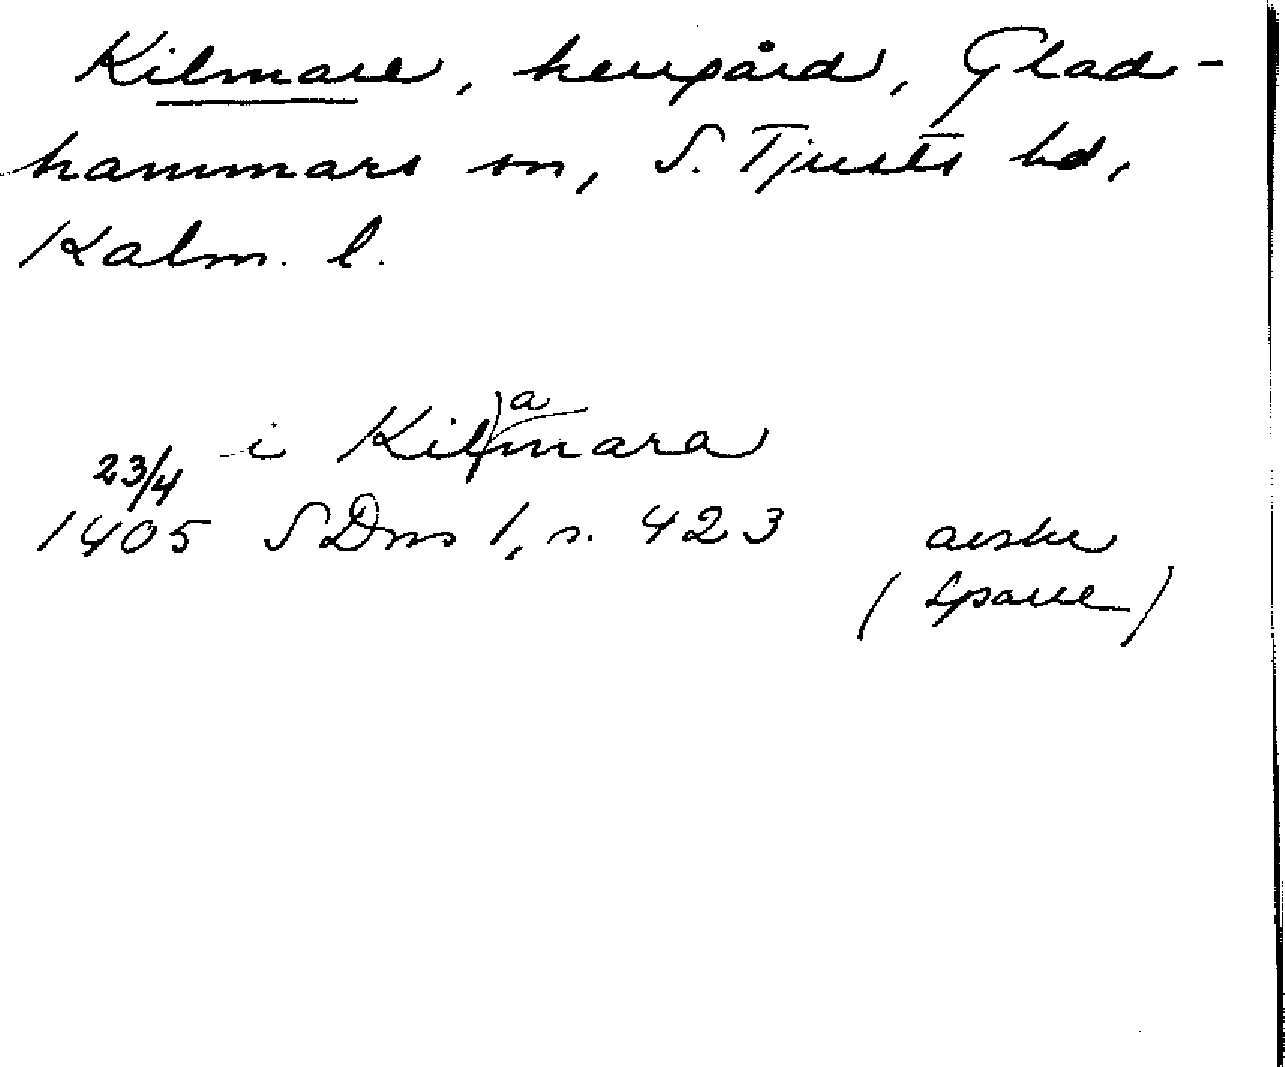 Kilmare, herrgård, Glad-
hammars sn, S. Tjusts hd,
Kalm. l.
i Kilamara
23/4
1405 SDns 1, s. 423 avskr
(Sparre)